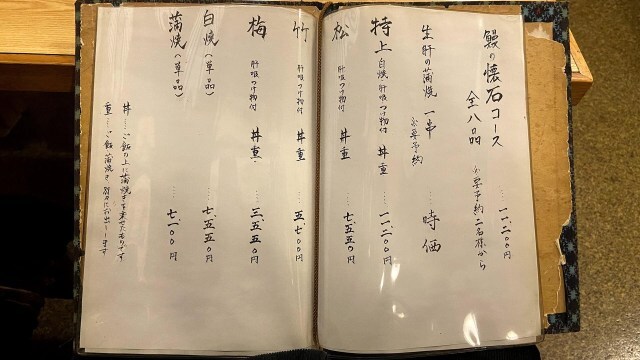 鰻の懐石コース 全八品 ※要予約二名様から …… 一一、二〇〇円
生肝の蒲焼 一串 ※要予約 …… 時価
特上 白焼 肝吸つけ物付 丼重 …… 一一、二〇〇円
松 肝吸つけ物付 丼重 …… 七、五五〇円
竹 肝吸つけ物付 丼重 …… 五、七〇〇円
梅 肝吸つけ物付 丼重 …… 三、五五〇円
白焼（単品） …… 七、五五〇円
蒲焼（単品） …… 七、一〇〇円
丼…ご飯の上に蒲焼きを乗せたものです
重…ご飯 蒲焼き 別々にお出しします